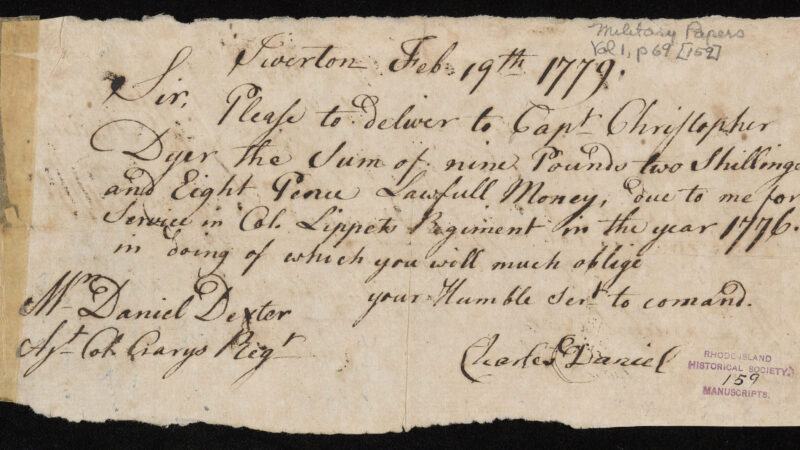 Military Papers
Vol 1, p 69 [159]
Tiverton Feb 19th 1779.
Sir, Please to deliver to Capt Christopher
Dyer the Sum of nine Pounds two Shillings
and Eight Pence Lawfull Money, due to me for
Service in Col. Lippets Regiment in the year 1776.
in doing of which you will much oblige
your Humble Sert to comand.
Mr Daniel Dexter
Ajt Col. Crarys Regt
Charles Daniel
RHODE ISLAND
HISTORICAL SOCIETY.
159
MANUSCRIPTS.